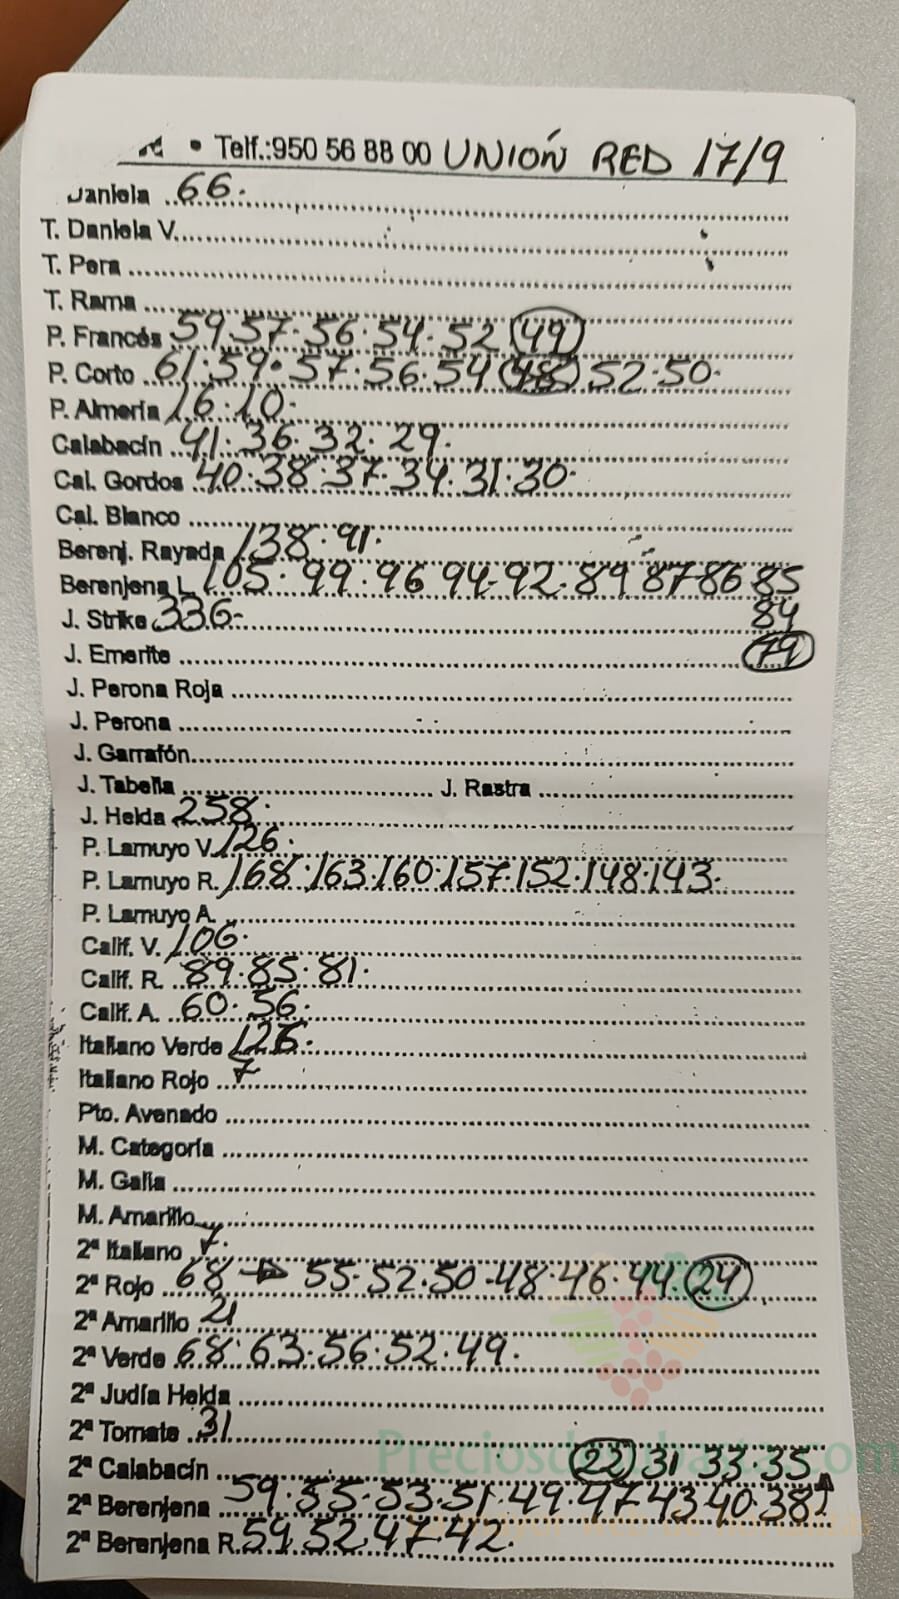 • Telf.:950 56 88 00 UNIÓN RED 17/9
Daniela 66.
T. Daniela V.
T. Pera
T. Rama
P. Francés 59.57.56.54.52 (49)
P. Corto 61.59.57.56.54 (48) 52.50.
P. Almería 16.10.
Calabacín 41.36.32.29.
Cal. Gordos 40.38.37.34.31.30.
Cal. Blanco
Berenj. Rayada 138.91.
Berenjena L. 105.99.96 94-92.89 87.86 85
J. Strike 336. 84
J. Emerite (79)
J. Perona Roja
J. Perona
J. Garrafón
J. Tabella J. Rastra
J. Helda 258.
P. Lamuyo V. 126.
P. Lamuyo R. 168.163.160.157.152.148.143.
P. Lamuyo A.
Calif. V. 106.
Calif. R. 89.85.81.
Calif. A. 60.56.
Italiano Verde 126.
Italiano Rojo 7
Pto. Avenado
M. Categoría
M. Galia
M. Amarillo
2ª Italiano 7.
2ª Rojo 68 → 55-52.50-48.46.44.(24)
2ª Amarillo 21
2ª Verde 68.63.56.52.49.
2ª Judía Helda
2ª Tomate 31
2ª Calabacín (22) 31 33.35
2ª Berenjena 59.55.53.51.49.47 43 40.38
2ª Berenjena R. 59.52.47.42.